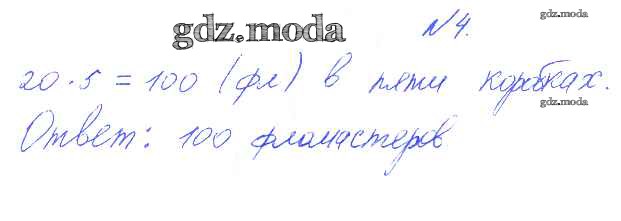 gdz.moda
№4.
gdz.moda
20·5 = 100 (фл) в пяти коробках.
gdz.moda
Ответ: 100 фломастеров